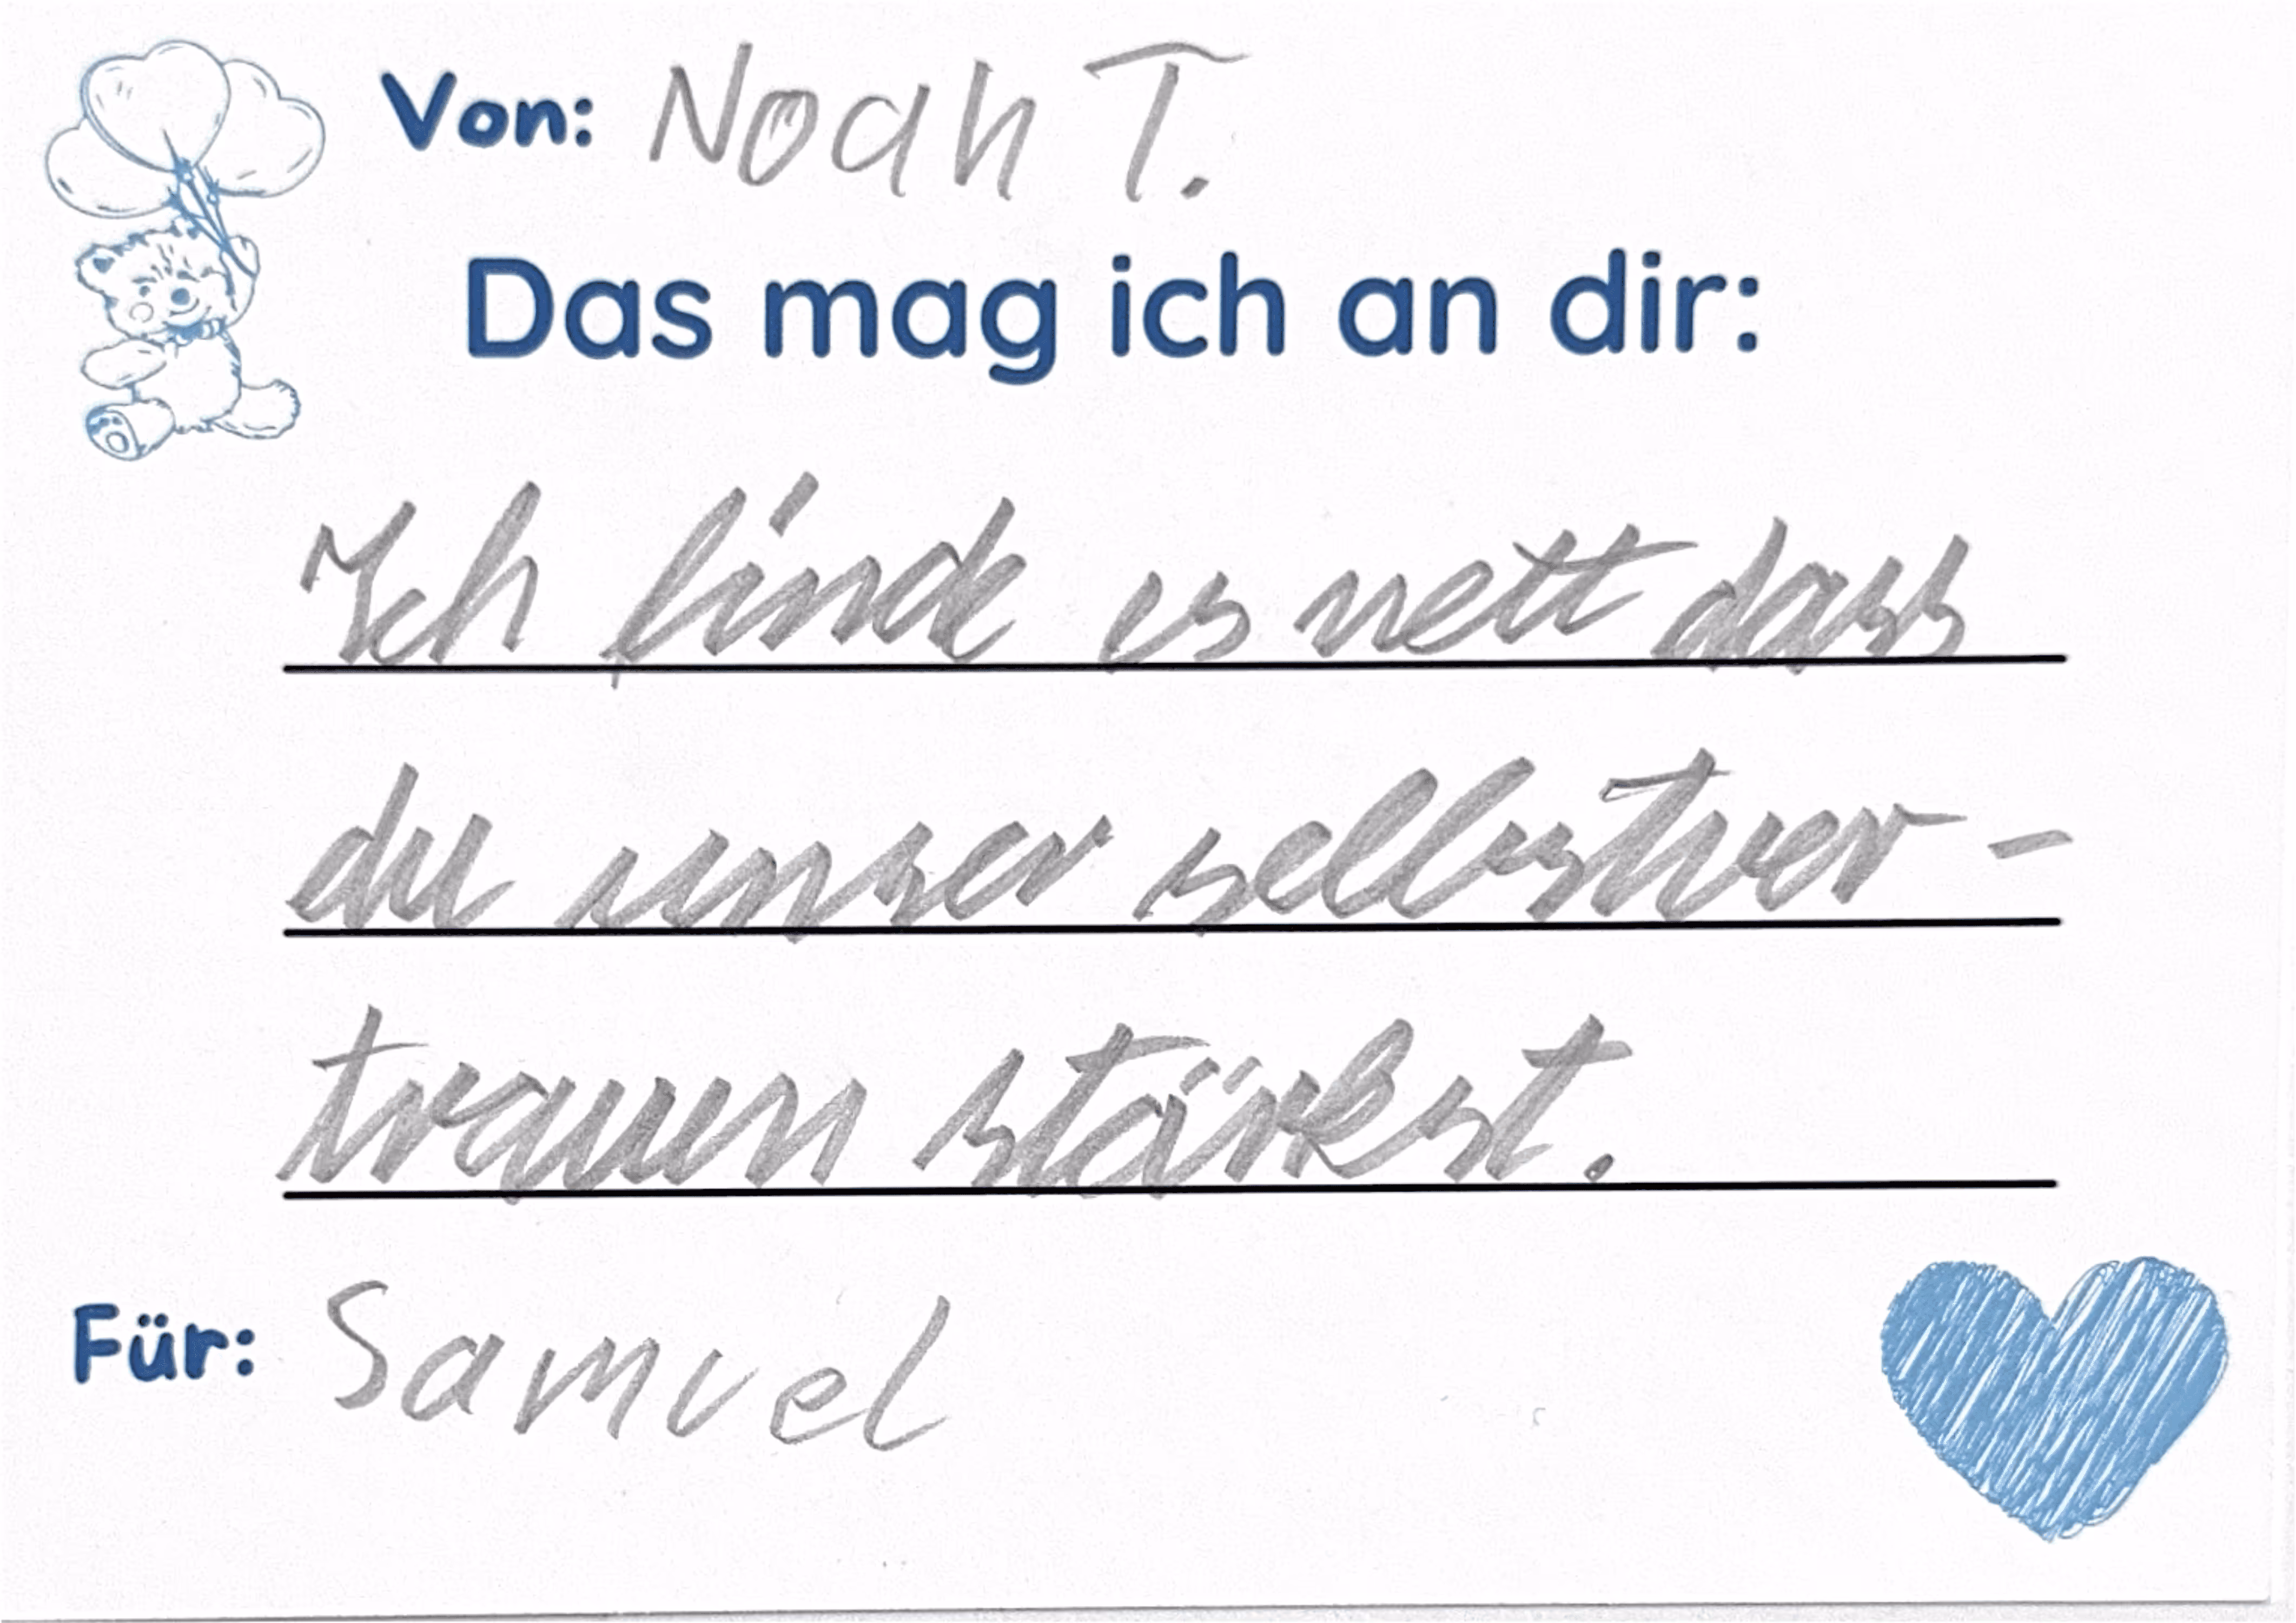 Von: Noah T.
Das mag ich an dir:
Ich finde es nett dass
du unser selbstver-
trauen stärkst.
Für: Samuel